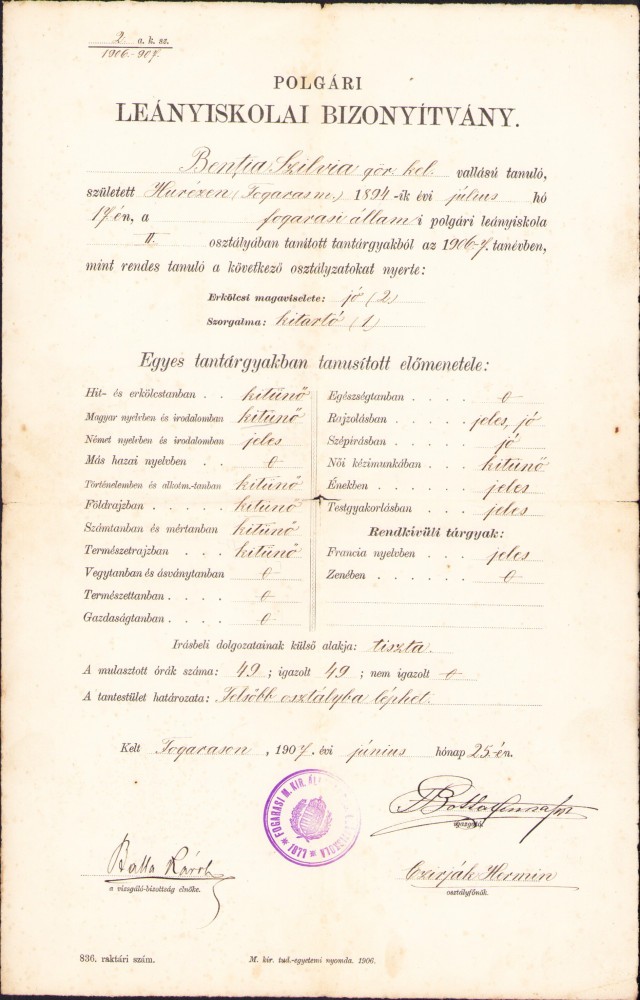 2 a. k. sz.
1906.-907.
POLGÁRI
LEÁNYISKOLAI BIZONYÍTVÁNY.
Benția Szilvia gör. kel. vallású tanuló,
született Hurézen (Fogarasm.) 1894-ik évi július hó
17-én, a fogarasi állami polgári leányiskola
II. osztályában tanított tantárgyakból az 1906-7. tanévben,
mint rendes tanuló a következő osztályzatokat nyerte:
Erkölcsi magaviselete: jó (2)
Szorgalma: kitartó (1)
Egyes tantárgyakban tanusított előmenetele:
Hit- és erkölcstanban . . kitünő
Magyar nyelvben és irodalomban kitünő
Német nyelvben és irodalomban jeles
Más hazai nyelvben . . 0
Történelemben és alkotm.-tanban kitünő
Földrajzban . . . . kitünő
Számtanban és mértanban kitünő
Természetrajzban . . . kitünő
Vegytanban és ásványtanban 0
Természettanban . . . . 0
Gazdaságtanban . . . . 0
Egészségtanban . . . . 0
Rajzolásban . . . . . jeles, jó
Szépírásban . . . . . jó
Női kézimunkában . . . kitünő
Énekben . . . . . . jeles
Testgyakorlásban . . . . jeles
Rendkivüli tárgyak:
Francia nyelvben . . . jeles
Zenében . . . . . . 0
Irásbeli dolgozatainak külső alakja: tiszta.
A mulasztott órák száma: 49 ; igazolt 49 ; nem igazolt 0
A tantestület határozata: Felsőbb osztályba léphet.
Kelt Fogarason , 1907. évi június hónap 25-én.
FOGARASI M. KIR. ÁLL
igazgató.
Balla Károly
a vizsgáló-bizottság elnöke.
Czirják Hermin
osztályfőnök.
836. raktári szám.
M. kir. tud.-egyetemi nyomda. 1906.